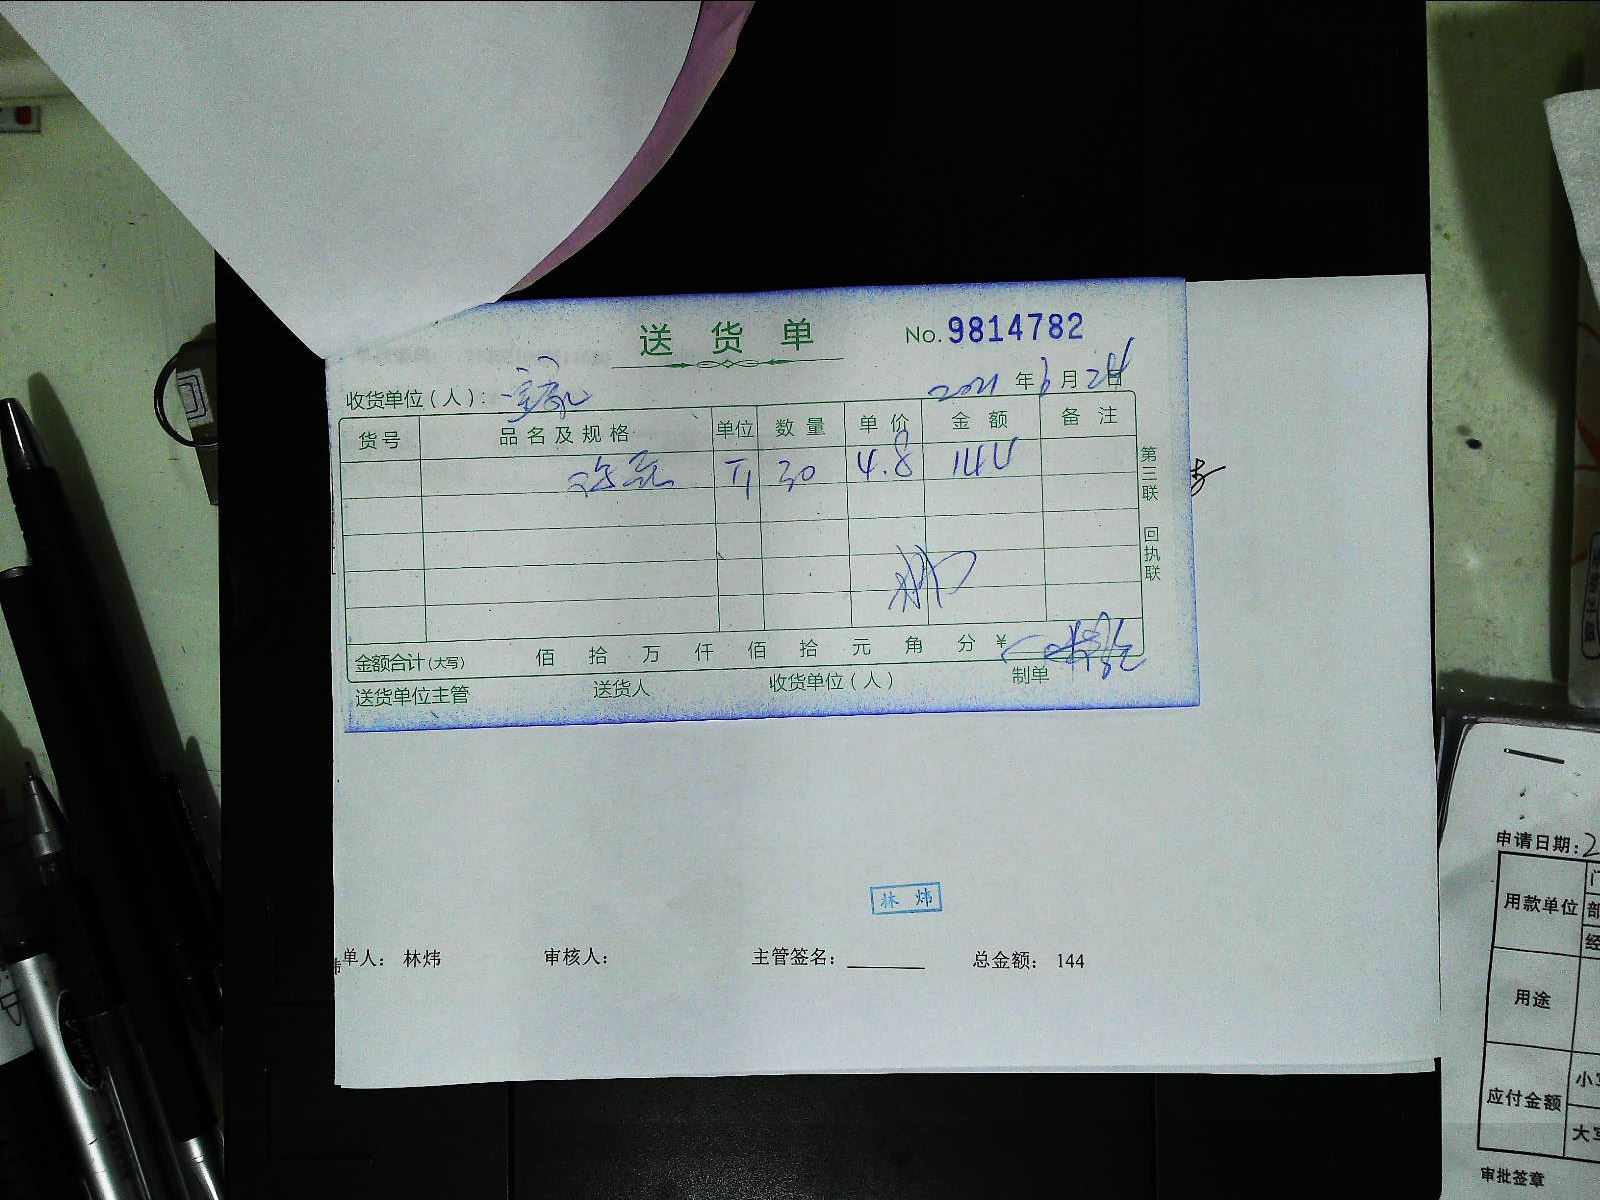 送货单 No. 9814782
收货单位（人）: 2021年6月24日
货号 品名及规格 单位 数量 单价 金额 备注
30 4.8 144
第三联 回执联
金额合计(大写) 佰 拾 万 仟 佰 拾 元 角 分 ¥
送货单位主管 送货人 收货单位（人） 制单
林 炜
单人： 林炜 审核人： 主管签名： 总金额： 144
申请日期: 2
用款单位
用途
应付金额 小写
大写
审批签章